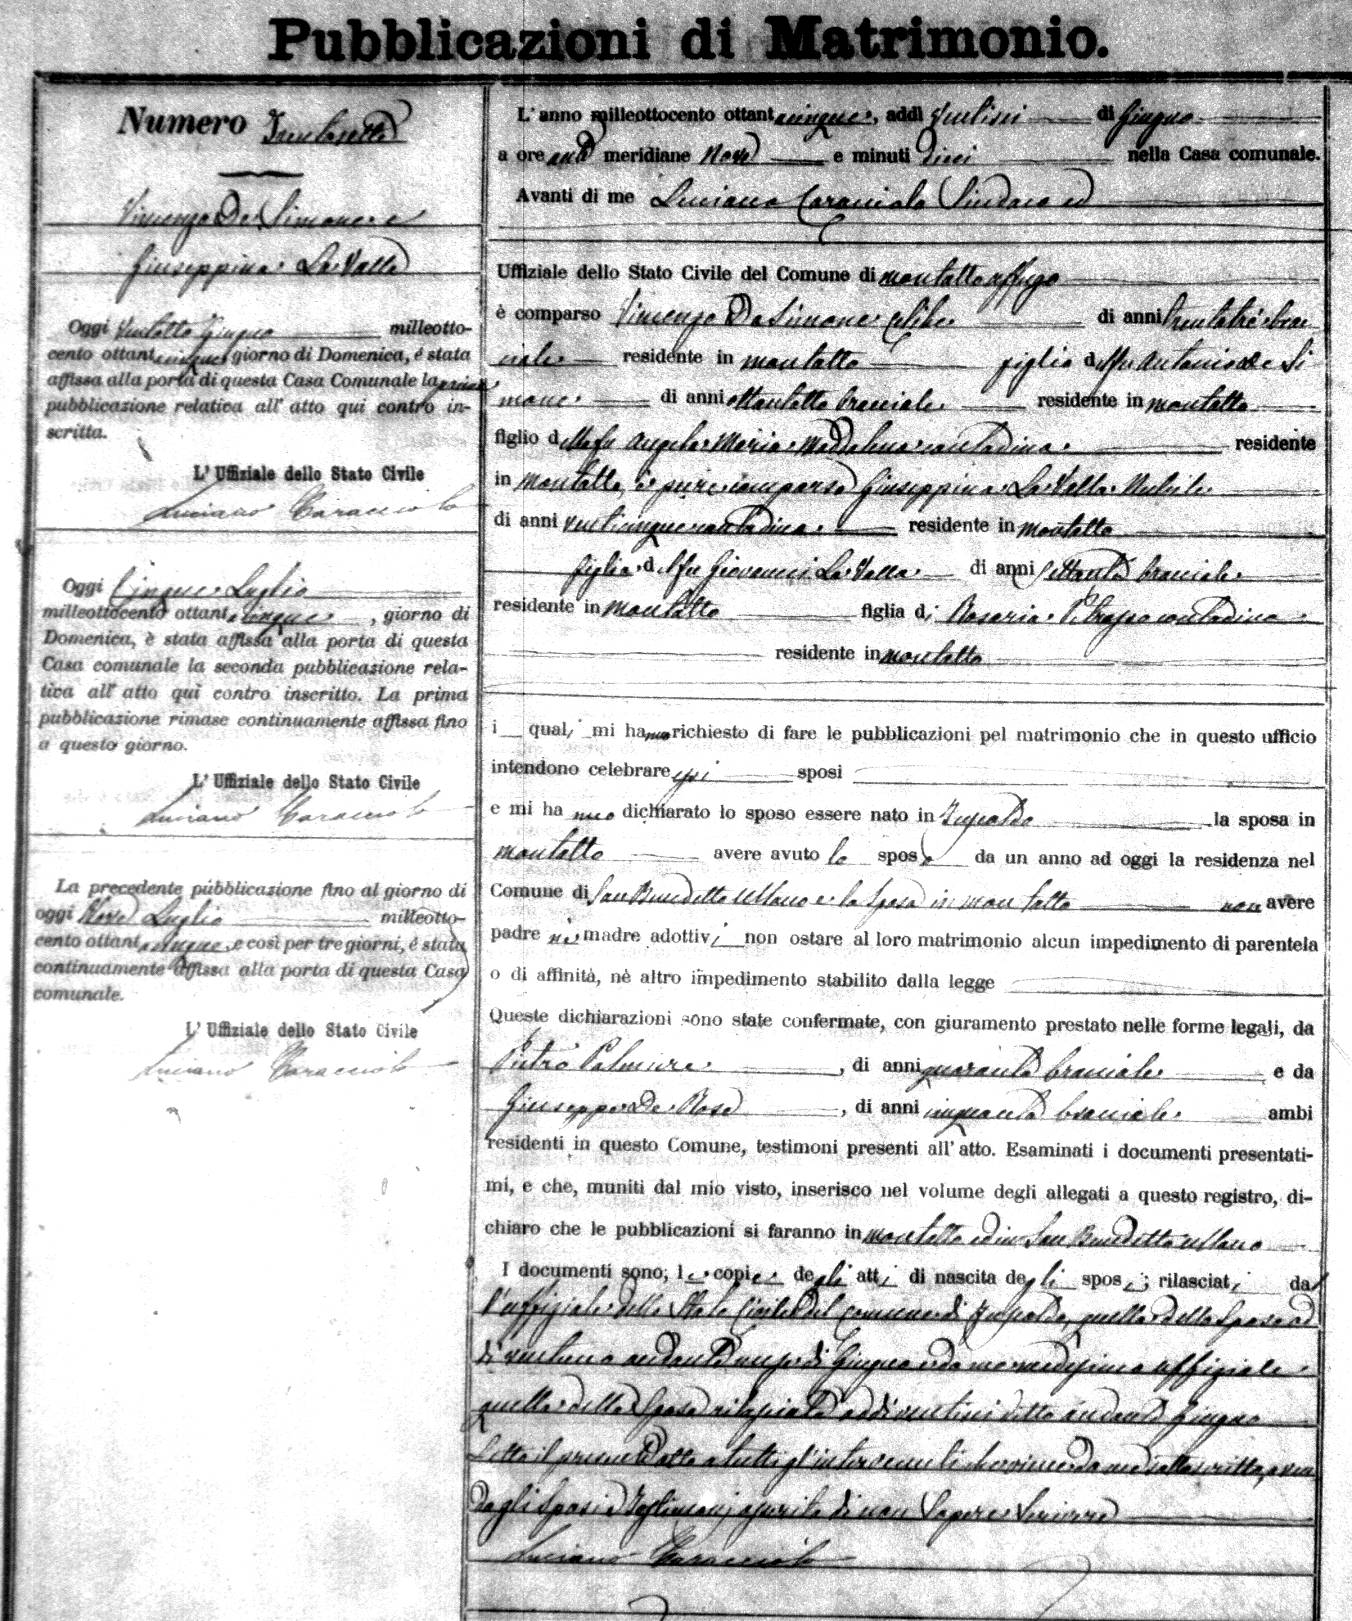 Pubblicazioni di Matrimonio.
Numero
Vincenzo De Simone e
Giuseppina La Valle
Oggi Ventotto Giugno milleotto-
cento ottantacinque giorno di Domenica, é stata
affissa alla porta di questa Casa Comunale la prima
pubblicazione relativa all' atto qui contro in-
scritta.
L' Uffiziale dello Stato Civile
Luciano Caracciolo
Oggi Cinque Luglio
milleottocento ottantacinque, giorno di
Domenica, è stata affissa alla porta di questa
Casa comunale la seconda pubblicazione rela-
tiva all' atto qui contro inscritto. La prima
pubblicazione rimase continuamente affissa fino
a questo giorno.
L' Uffiziale dello Stato Civile
Luciano Caracciolo
La precedente pubblicazione fino al giorno di
oggi Nove Luglio milleotto-
cento ottantacinque, e così per tre giorni, é stata
continuamente affissa alla porta di questa Casa
comunale.
L' Uffiziale dello Stato Civile
Luciano Caracciolo
L' anno milleottocento ottantacinque, addì Ventisei di Giugno
a ore anti meridiane Nove e minuti dieci nella Casa comunale.
Avanti di me Luciano Caracciolo Sindaco ed
Uffiziale dello Stato Civile del Comune di Montalto Uffugo
è comparso Vincenzo De Simone celibe di anni trentatré brac
ciale residente in Montalto figlio del fu Antonio De Si
mone di anni ottantotto bracciale residente in Montalto
figlio della fu Angela Maria Maddalena contadina residente
in Montalto, è pure comparsa Giuseppina La Valle Nubile
di anni venticinque contadina residente in Montalto
figlia del fu Giovanni La Valle di anni settanta bracciale
residente in Montalto figlia di Rosaria contadina
residente in Montalto
i quali mi hanno richiesto di fare le pubblicazioni pel matrimonio che in questo ufficio
intendono celebrare essi sposi
e mi hanno dichiarato lo sposo essere nato in la sposa in
Montalto avere avuto lo sposo da un anno ad oggi la residenza nel
Comune di San Benedetto Ullano e la sposa in Montalto non avere
padre nè madre adottivi non ostare al loro matrimonio alcun impedimento di parentela
o di affinità, nè altro impedimento stabilito dalla legge
Queste dichiarazioni sono state confermate, con giuramento prestato nelle forme legali, da
Pietro Palmire, di anni quaranta bracciale e da
Giuseppe De Rose, di anni cinquanta bracciale ambi
residenti in questo Comune, testimoni presenti all' atto. Esaminati i documenti presentati-
mi, e che, muniti dal mio visto, inserisco nel volume degli allegati a questo registro, di-
chiaro che le pubblicazioni si faranno in Montalto ed in San Benedetto Ullano
I documenti sono; le copie degli atti di nascita degli sposi; rilasciati dal
l'uffiziale dello Stato Civile del Comune di quella dello Sposo ad
dì ventuno andante mese di Giugno e da me medesimo uffiziale
quella della Sposa rilasciata addì ventisei detto andante Giugno
Letto il presente atto a tutti gl'intervenuti che viene da me sottoscritto, avendo
dagli Sposi e Testimoni asserito di non Sapere Scrivere
Luciano Caracciolo